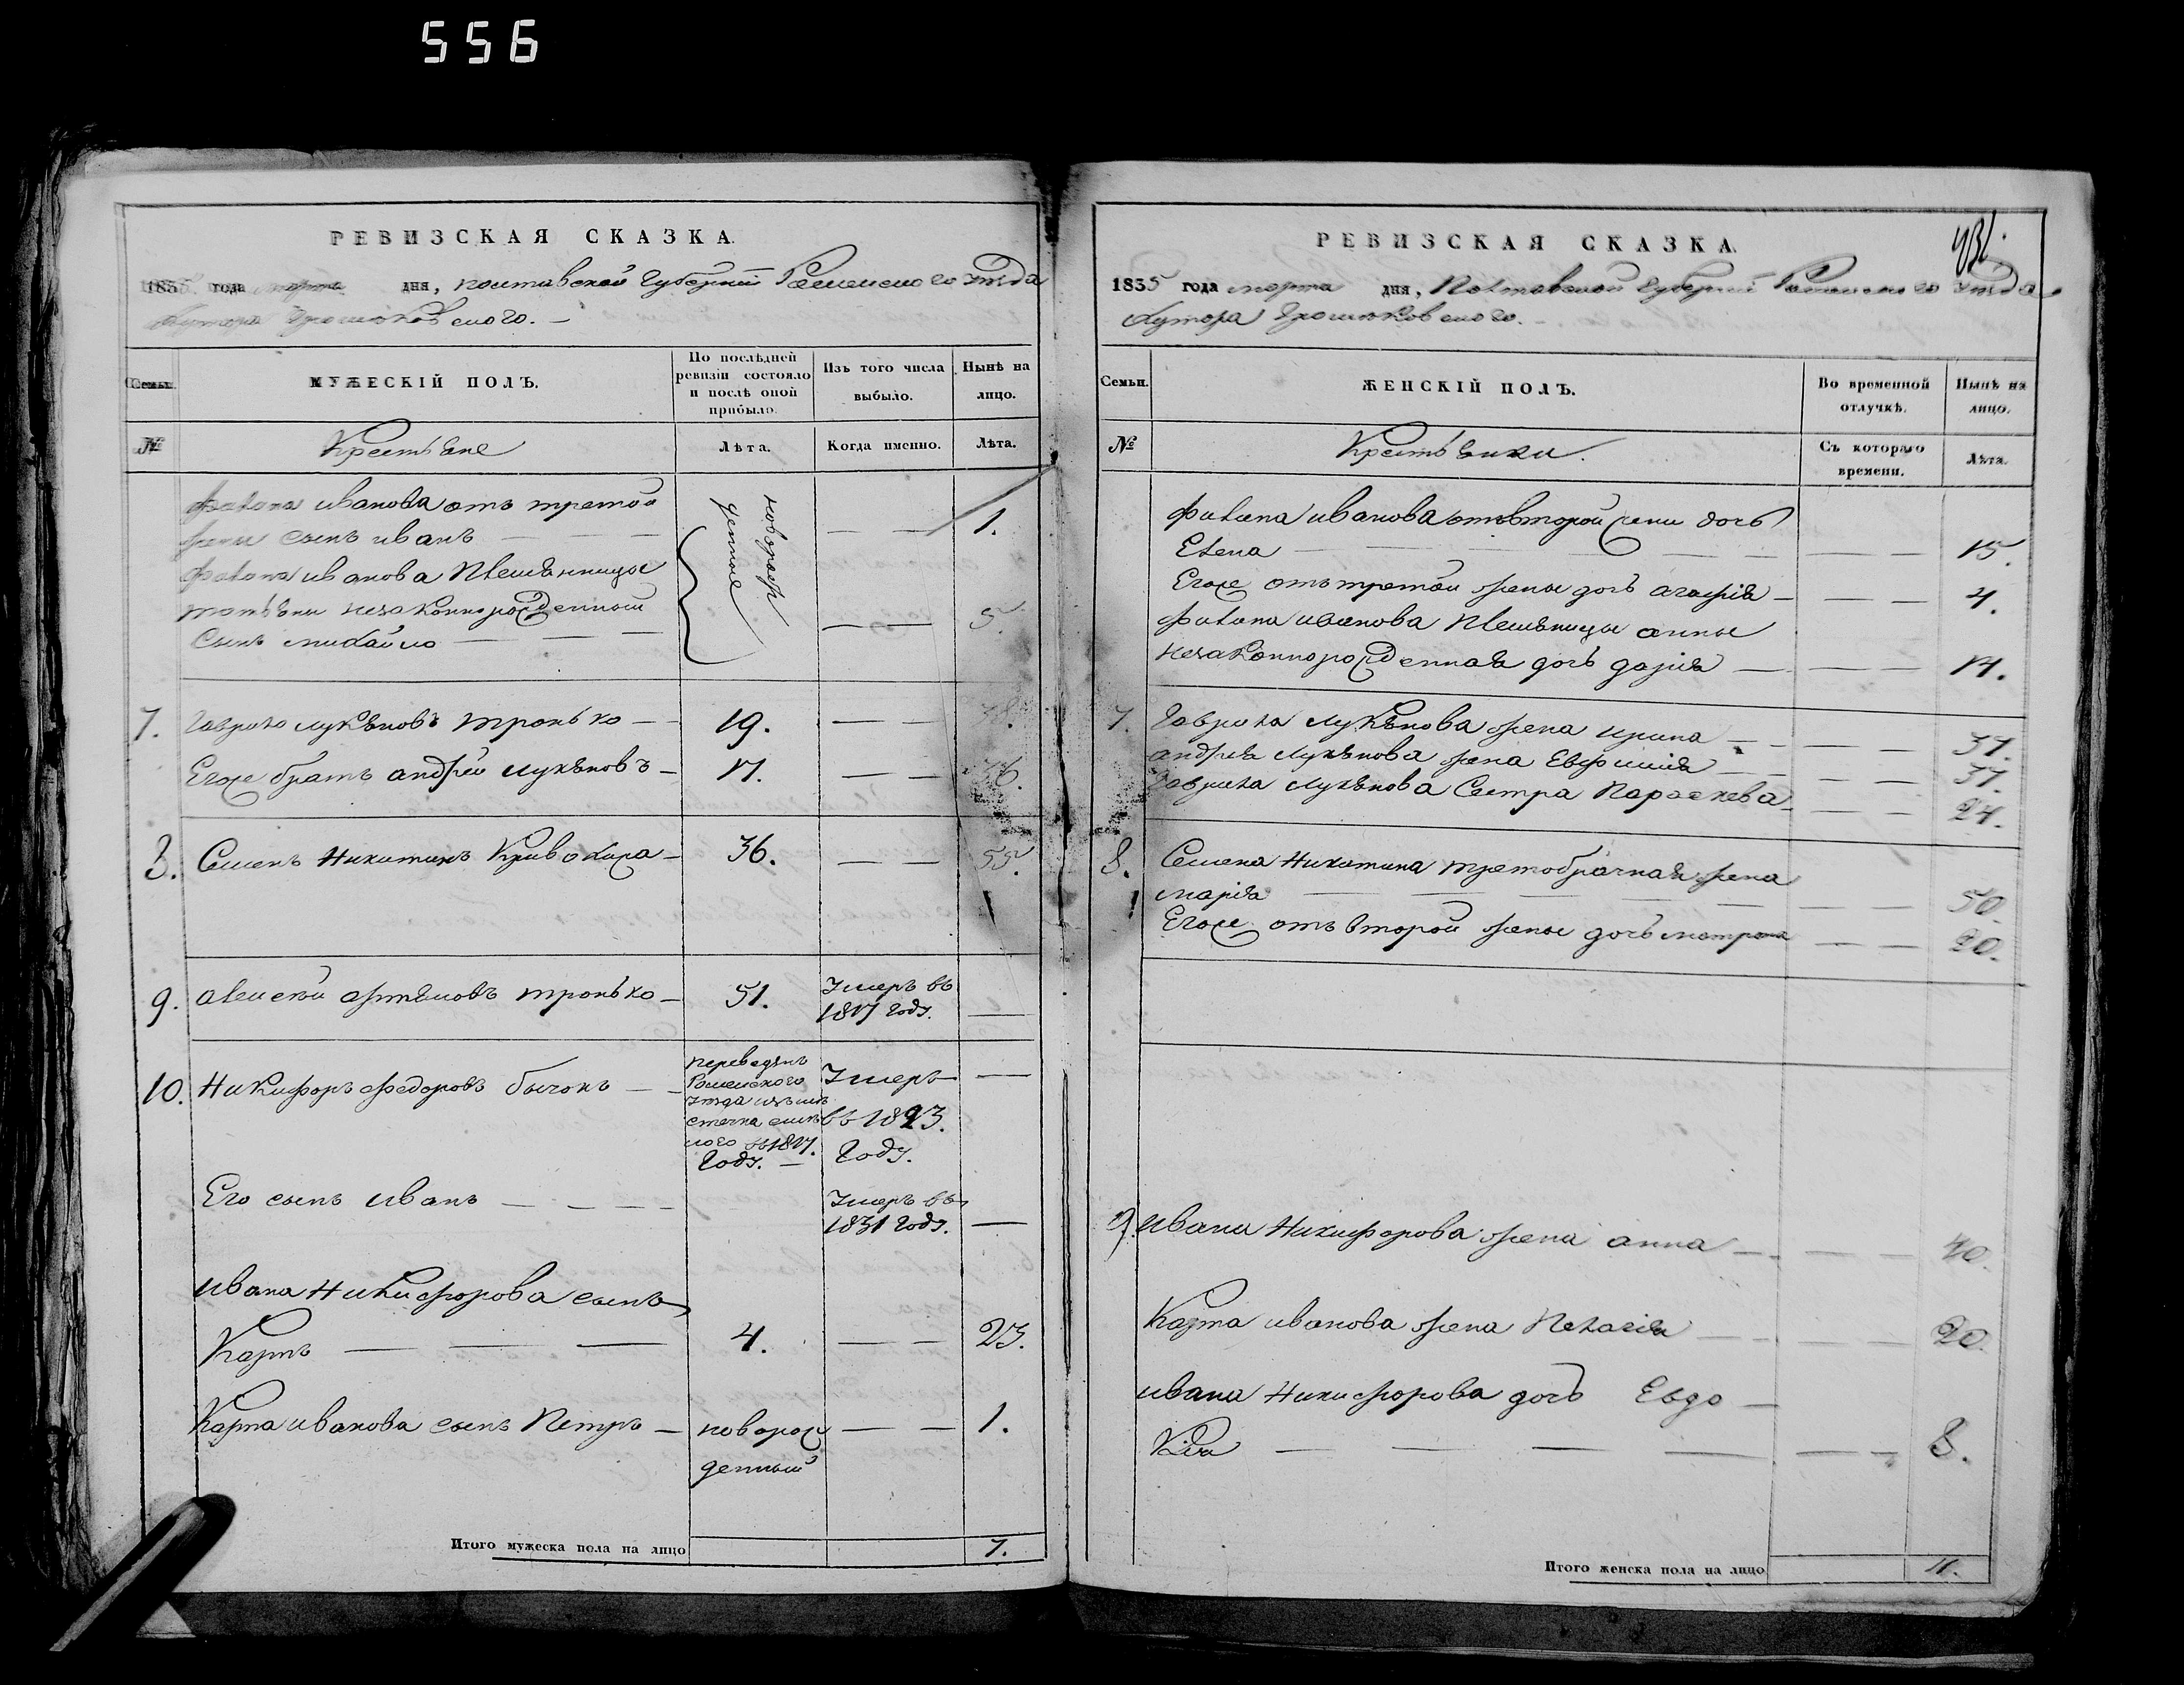 556
РЕВИЗСКАЯ СКАЗКА.
1835 года марта дня, Полтавской Губерніи Роменскаго уѣзда
Хутора
МУЖЕСКІЙ ПОЛЪ.
Семьи.
По послѣдней ревизіи состояло и послѣ оной прибыло.
Изъ того числа выбыло.
Нынѣ на лицо.
№
Крестьяне
Лѣта.
Когда именно.
Лѣта.
иванова отъ третой
жены сынъ иванъ — — — новорож — — 1.
иванова племѣнницы денные
незаконнорожденный
сынъ михайло — — — — — 5.
7. Гаврило лукѣновъ тронько — 19. — —
Егоже братъ андрей лукѣновъ — 17. — — 36.
8. Семенъ Никитинъ Кривохижа — 36. — — 55.
9. алексѣй артѣмовъ тронько — 51. Умеръ въ
1817 году. —
10. Никифоръ федоровъ бычокъ — — переведѣнъ
Роменского
уѣзда изъ мѣ
стечка смѣ
лого въ 1817.
году. —
Умеръ —
въ 1823.
году.
Его сынъ иванъ — — — — Умеръ въ
1831 году. —
ивана Никифорова сынъ
Карпъ — — — 4. — — 23.
Карпа иванова сынъ Петръ — новорож — — 1.
денный
Итого мужеска пола на лицо 7.
РЕВИЗСКАЯ СКАЗКА.
1835 года марта дня, Полтавской Губерніи Роменскаго уѣзда
Хутора
Семьи.
ЖЕНСКІЙ ПОЛЪ.
Во временной отлучкѣ.
Нынѣ на лицо.
№
Крестьянки.
Съ котораго времени.
Лѣта.
иванова отъ второй жены дочь
Елена — — — 15.
Егоже отъ третей жены дочь агафія — — — 4.
иванова племѣницы анны
незаконнорожденная дочь дарія — — — 14.
7. Гаврила лукѣнова жена ирина — — — 37.
андрея лукѣнова жена Евфимія — — — 37.
Гаврила лукѣнова Сестра Параскева — — — 24.
8. Семена Никитина третобрачная жена
марія — — — 50.
Егоже отъ второй жены дочь матрона — — 20.
9. ивана Никифорова жена анна — — — 40.
Карпа иванова жена Пелагія — — — 20.
ивана Никифорова дочь Евдо —
кія — — — — — — 8.
Итого женска пола на лицо 11.